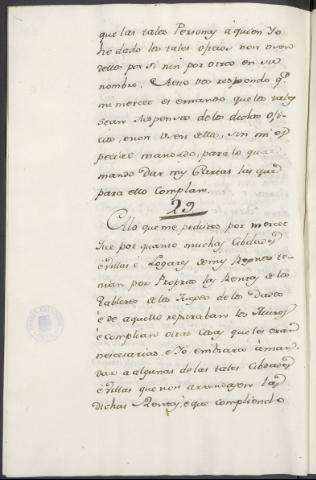 que las tales Personas á quien Yo
he dado los tales ofisios non usen
dellos por si nin por otros en su
nombre. A esto vos respondo q.e
mi merced es e mando que los tales
sean suspensos de los dichos ofi-
cios, e non usen dellos, sin mi es-
pecial mandado, para lo qual
mando dar mis Cartas las que
para ello Complan.
29
A lo que me pedistes por merced
que por quanto muchas Cibdades
e Villas é Logares de mis Regnos te-
nian por Proprios las Rentas de los
tableros de los Juegos de los Dados
é de aquello reparaban los Muros
é complian otras Cosas que les eran
nescesarias, e Yo embiara á man-
dar a algunas de las tales Cibdades
é Villas que non arrendasen las
dichas Rentas, é que compliendo